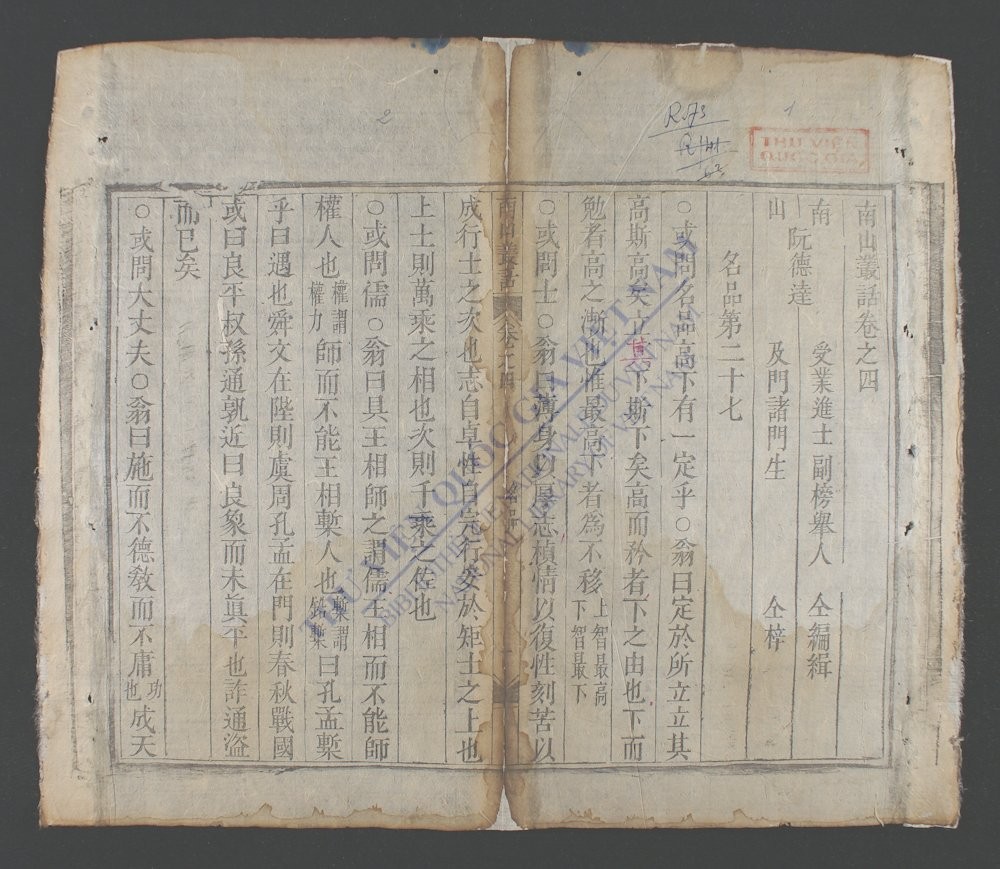 2
1
R.73
THƯ VIỆN
QUỐC GIA
南山叢話卷之四
南 受業進士副榜舉人 仝編緝
阮德達
山 及門諸門生 仝梓
名品第二十七
○或問名品高下有一定乎○翁曰定於所立立其
高斯高矣立其下斯下矣高而矜者下之由也下而
勉者高之漸也惟最高下者為不移上智最高下智最下
○或問士○翁曰薄身以厚志槙情以復性刻苦以
南山叢話 卷之四 名品 一
成行士之次也志自卓性自完行安於矩士之上也
上士則萬乘之相也次則千乘之佐也
○或問儒○翁曰具王相師之謂儒王相而不能師
權人也權謂權力師而不能王相槧人也槧謂鉛槧曰孔孟槧
乎曰遇也舜文在陛則虞周孔孟在門則春秋戰國
或曰良平叔孫通孰近曰良象而未眞平也詐通盜
而已矣
○或問大丈夫○翁曰施而不德敎而不庸功也成天
THƯ VIỆN QUỐC GIA VIỆT NAM
BIBLIOTHÈQUE NATIONALE DU VIETNAM
NATIONAL LIBRARY OF VIETNAM